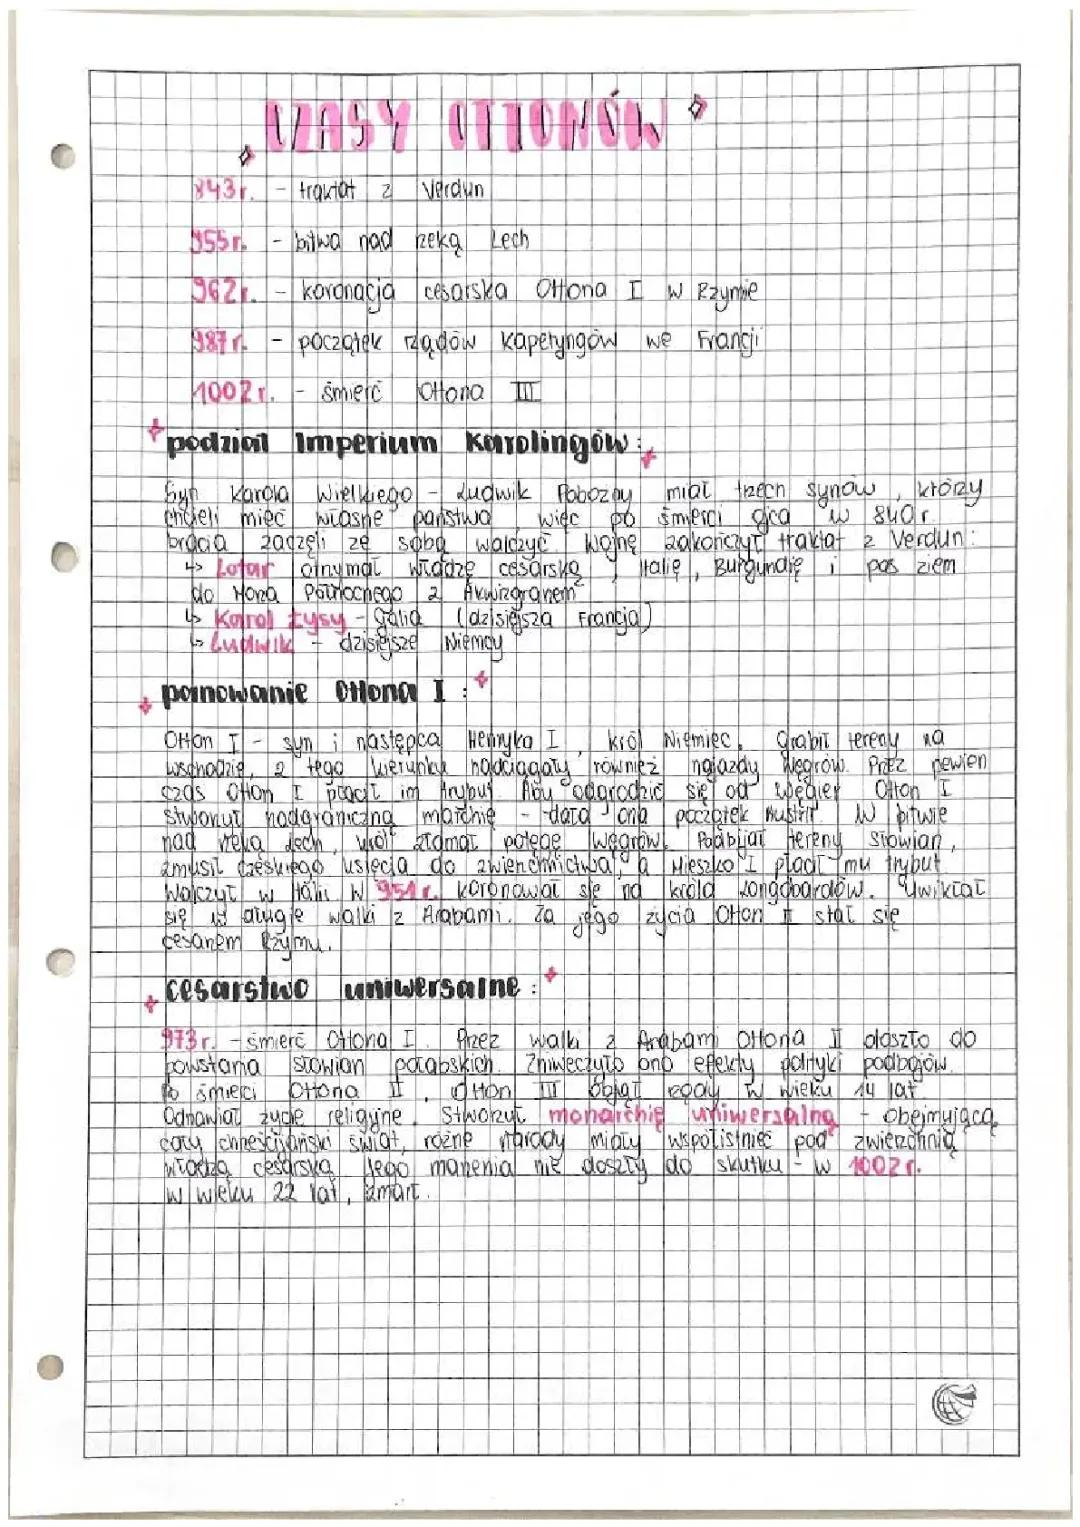 CZASY OTTONÓW
843r. - traktat z Verdun
955r. - bitwa nad rzeką Lech
962r. - koronacja cesarska Ottona I w Rzymie
987r. - początek rządów Kapetyngów we Francji
1002r. - śmierć Ottona III
podział Imperium Karolingów:
Syn Karola Wielkiego - Ludwik Pobożny miał trzech synów, którzy
chcieli mieć własne państwa, więc po śmierci ojca w 840r.
bracia zaczęli ze sobą walczyć. Wojnę zakończył traktat z Verdun:
↳ Lotar otrzymał władzę cesarską, Italię, Burgundię i pas ziem
do Morza Północnego z Akwizgranem
↳ Karol Łysy - Galia (dzisiejsza Francja)
↳ Ludwik - dzisiejsze Niemcy
panowanie Ottona I:
Otton I - syn i następca Henryka I, król Niemiec. Grabił tereny na
wschodzie, z tego kierunku nadciągały również najazdy Węgrów. Przez pewien
czas Otton I płacił im trybut. Aby odgrodzić się od Węgier Otton I
stworzył nadgraniczną marchię - dała ona początek Austrii. W bitwie
nad rzeką Lech, król złamał potęgę Węgrów. Podbijał tereny Słowian,
zmusił czeskiego księcia do zwierzchnictwa, a Mieszko I płacił mu trybut.
Walczył w Italii w 951r. koronował się na króla Longobardów. Uwikłał
się w długie walki z Arabami. Za jego życia Otton II stał się
cesarzem Rzymu.
cesarstwo uniwersalne:
973r. - śmierć Ottona I. Przez walki z Arabami Ottona II doszło do
powstania Słowian połabskich. Zniweczyło ono efekty polityki podbojów.
Po śmierci Ottona II, Otton III objął rządy w wieku 14 lat.
Odnawiał życie religijne. Stworzył monarchię uniwersalną - obejmującą
cały chrześcijański świat, różne narody miały współistnieć pod zwierzchnią
władzą cesarską. Jego marzenia nie doszły do skutku - w 1002r.
w wieku 22 lat, zmarł.